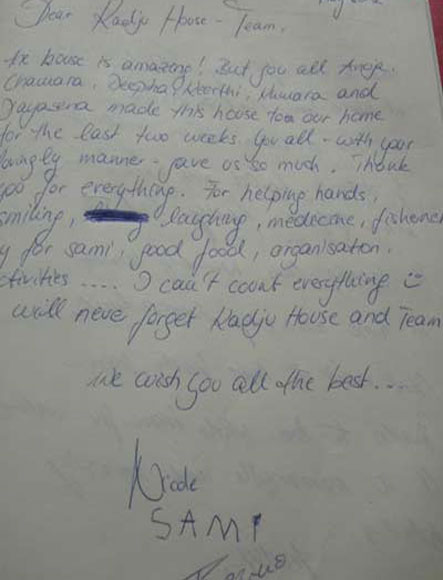 Dear Radju House - Team,
the house is amazing! But you all Aneja,
Chamara, Deepthal, Keerthi, Kumara and
Jayasena made this house too our home
for the last two weeks. You all - with your
lovingly manner - gave us so much. Thank
you for everything. For helping hands,
smiling, laughing, medecine, fisherm
y for sami, good food, organisation,
ctivities .... I can't count everything ☺
will never forget Radju House and Team
We wish you all the best....
Nicole
SAMI